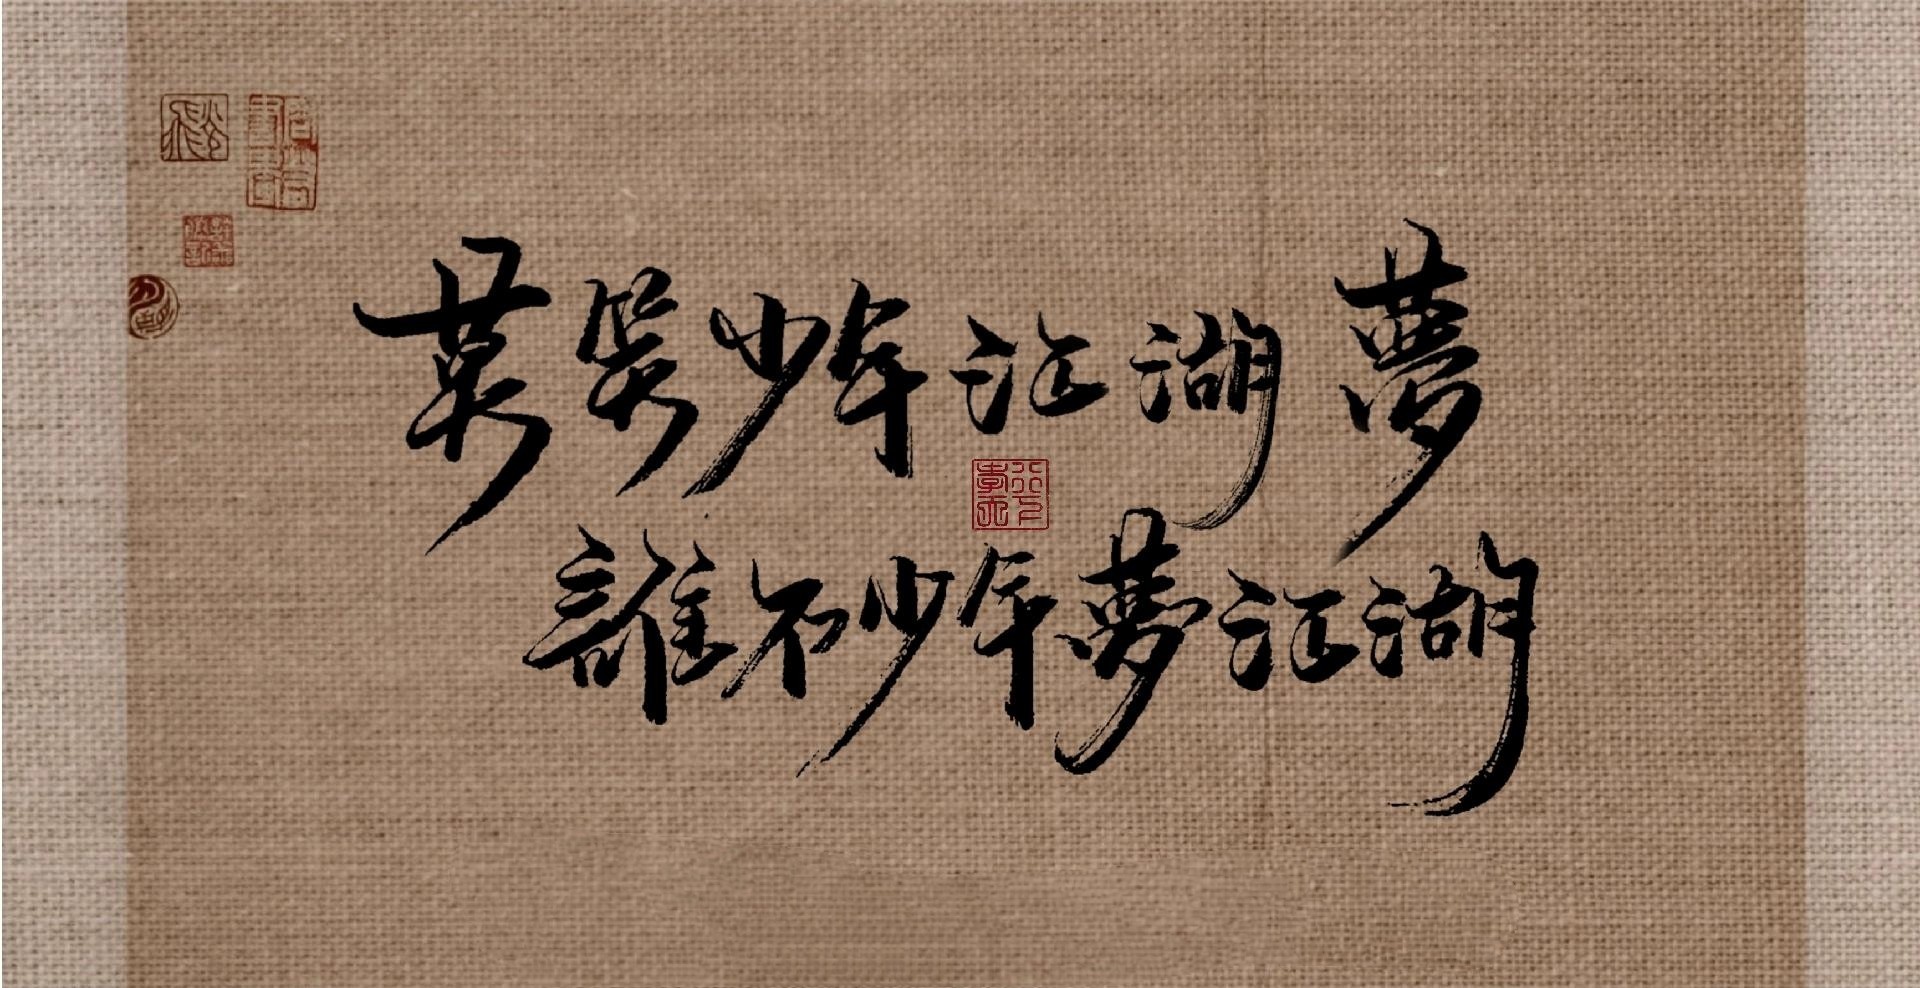 莫笑少年江湖夢
誰不少年夢江湖